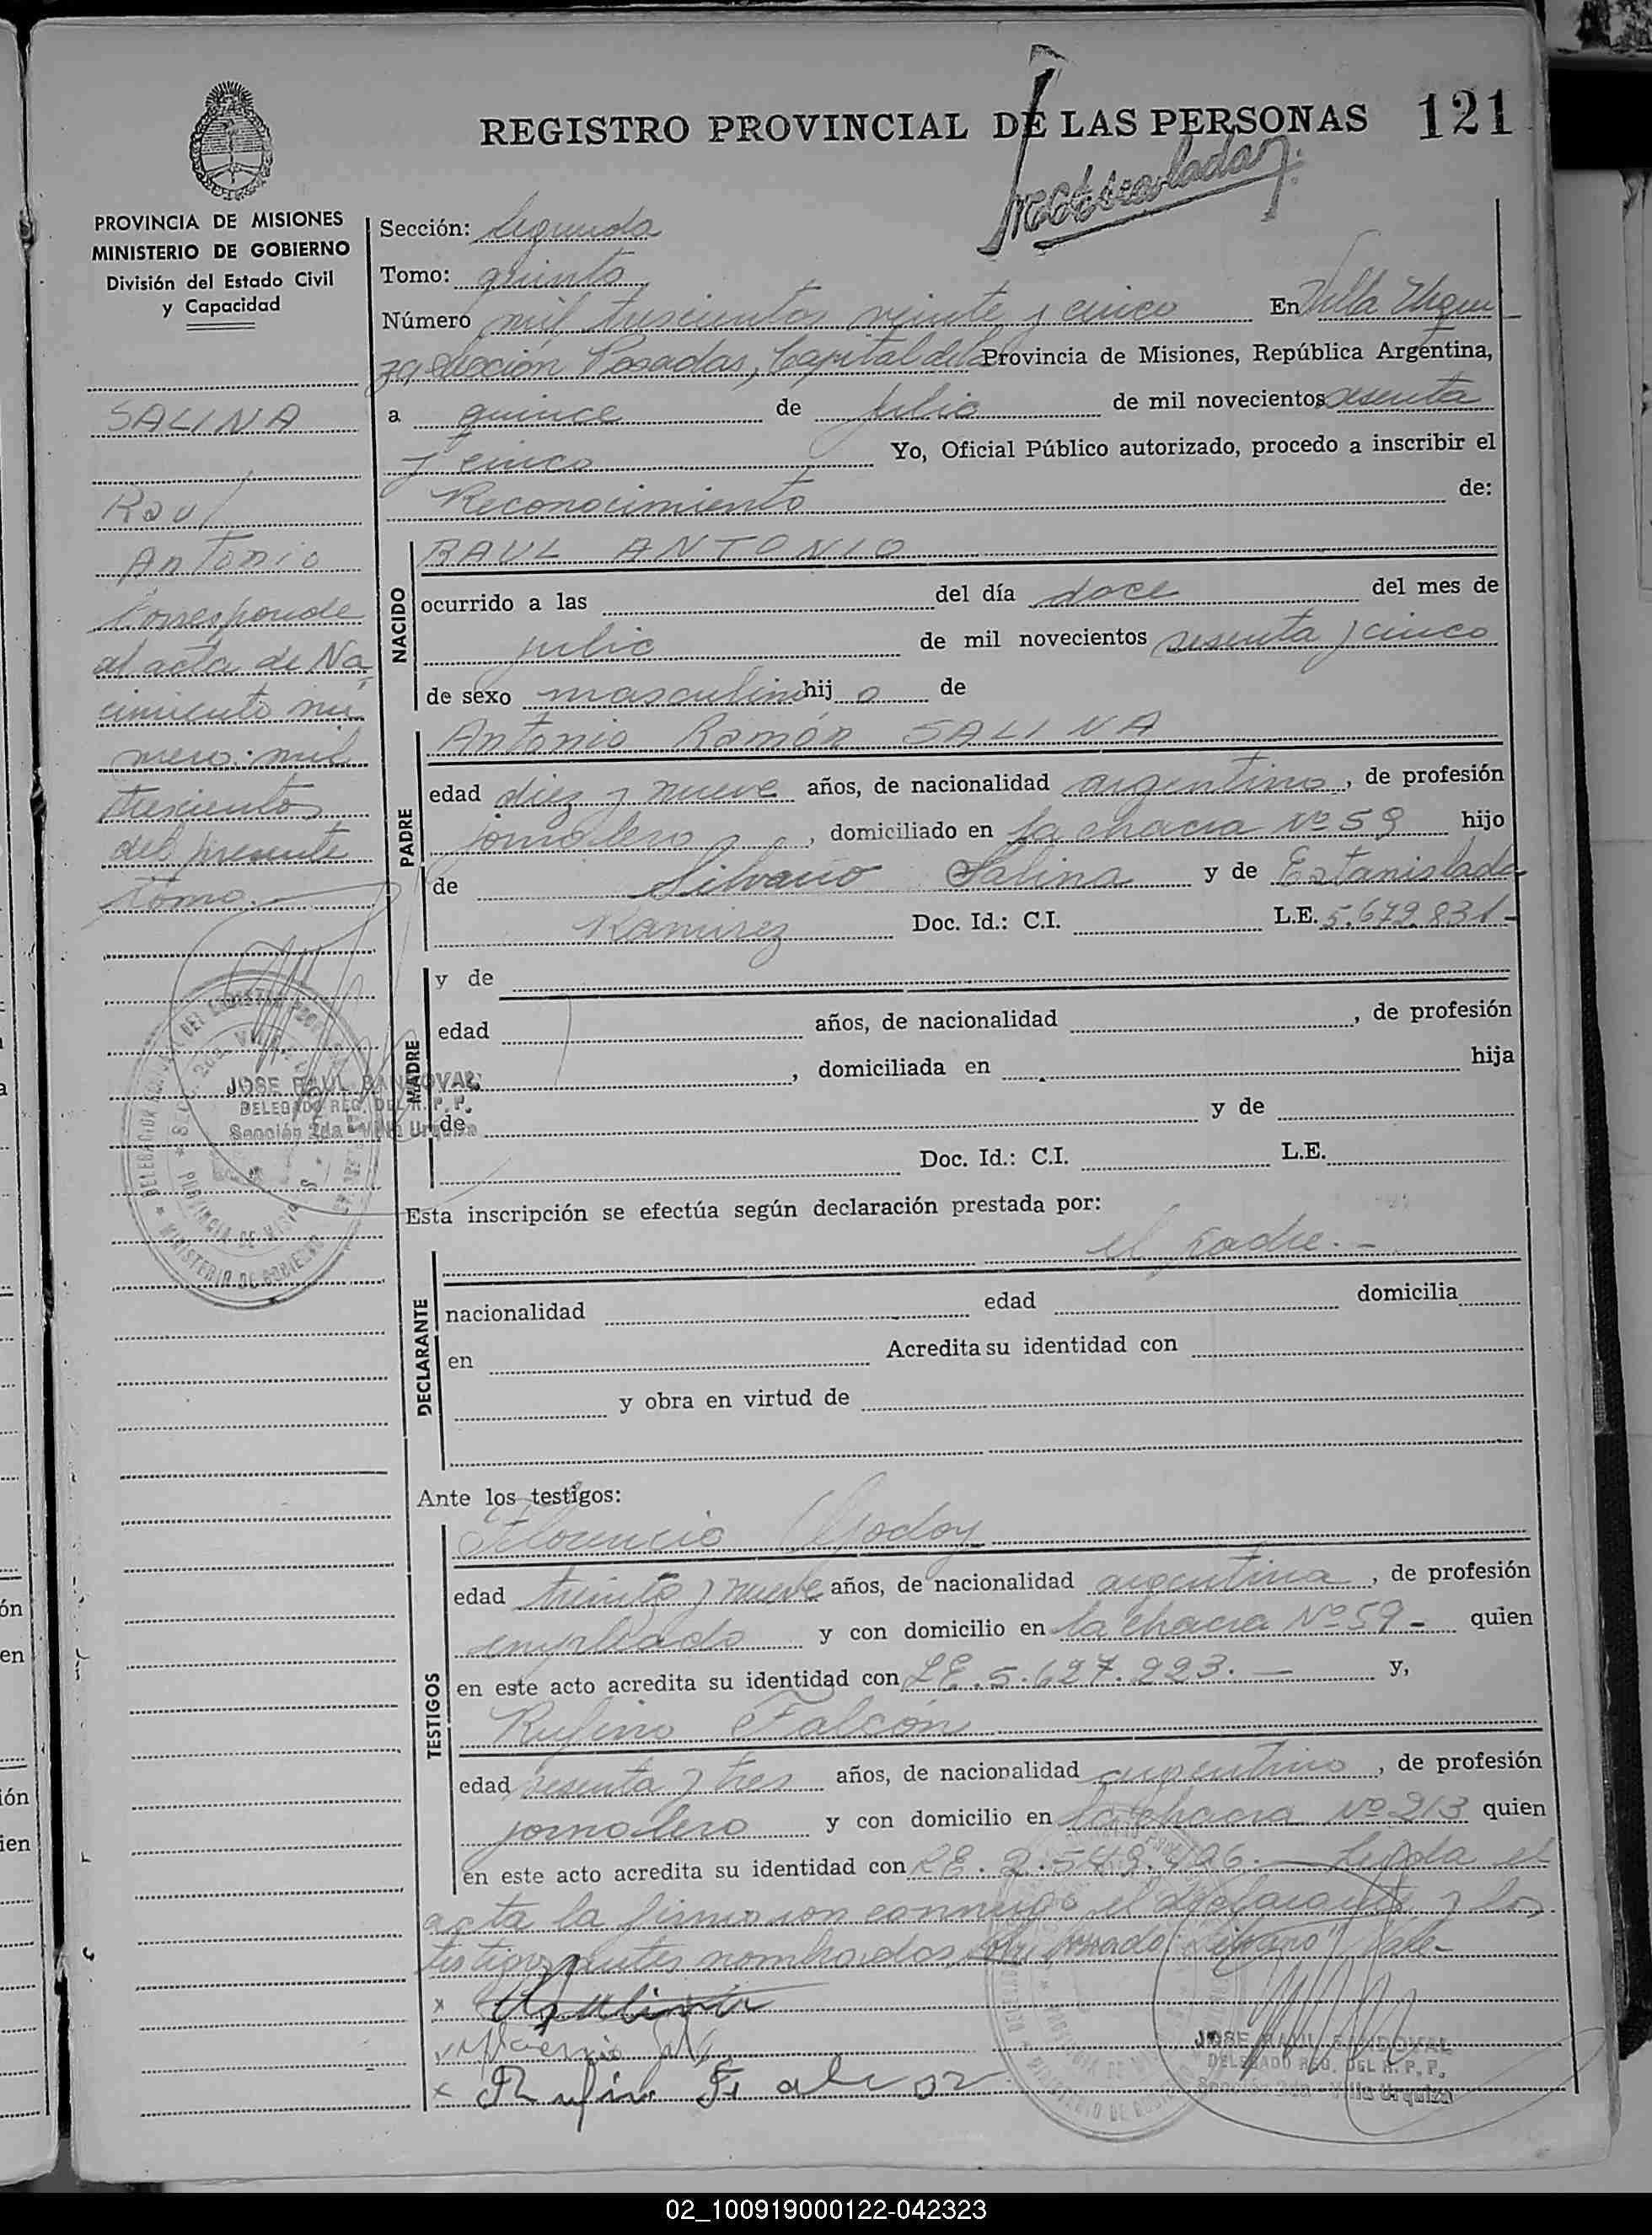 REGISTRO PROVINCIAL DE LAS PERSONAS 121
PROVINCIA DE MISIONES
MINISTERIO DE GOBIERNO
División del Estado Civil
y Capacidad
SALINA
Raul
Antonio
Corresponde
al acta de Na
cimiento nú
mero: mil
trescientos
del presente
tomo.
JOSE RAUL SANDOVAL
DELEGADO REG. DEL R. P. P.
Sección 2da - Villa Urquiza
Sección: Segunda
Tomo: quinto
Número mil trescientos veinte y cinco En Villa Urqui-
za Sección Posadas, Capital de la Provincia de Misiones, República Argentina,
a quince de julio de mil novecientos sesenta
y cinco Yo, Oficial Público autorizado, procedo a inscribir el
Reconocimiento de:
NACIDO
RAUL ANTONIO
ocurrido a las del día doce del mes de
julio de mil novecientos sesenta y cinco
de sexo masculino hij o de
PADRE
Antonio Ramón SALINA
edad diez y nueve años, de nacionalidad argentino, de profesión
jornalero, domiciliado en la chacra Nº 59 hijo
de Silvano Salina y de Estanislada
Ramirez Doc. Id.: C.I. L.E. 5.679.831-
MADRE
y de
edad años, de nacionalidad , de profesión
, domiciliada en hija
de y de
Doc. Id.: C.I. L.E.
Esta inscripción se efectúa según declaración prestada por:
DECLARANTE
el padre.-
nacionalidad edad domicilia
en Acredita su identidad con
y obra en virtud de
Ante los testigos:
TESTIGOS
Florencio Godoy
edad treinta y nueve años, de nacionalidad argentina, de profesión
empleado y con domicilio en la chacra Nº 59- quien
en este acto acredita su identidad con L.E. 5.627.223.- y,
Rufino Falcón
edad sesenta y tres años, de nacionalidad argentino, de profesión
jornalero y con domicilio en la chacra Nº 213 quien
en este acto acredita su identidad con L.E. 2.549.426.- Leída el
acta la firmaron conmigo el declarante y los
testigos antes nombrados, Silvano Vale-
x
x
x Rufino Falcon
JOSE RAUL SANDOVAL
DELEGADO REG. DEL R. P. P.
Sección 2da - Villa Urquiza
02_100919000122-042323